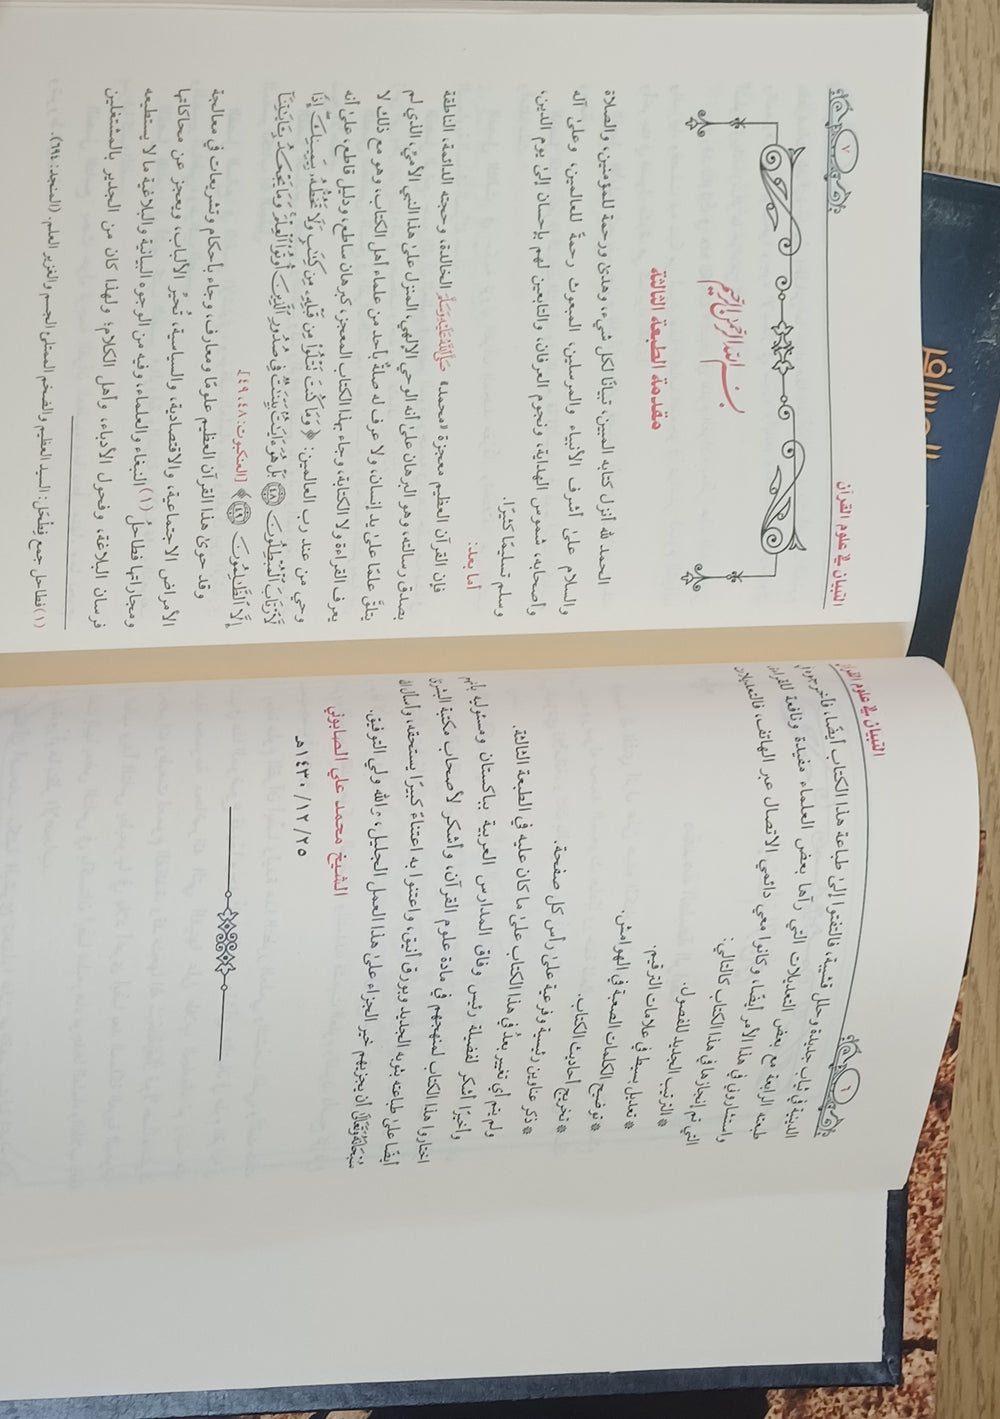 التبيان في علوم القرآن
٦
الدينية في ثياب جديدة وحلل قشيبة، فالتفتوا إلى طباعة هذا الكتاب أيضًا، فأخرجوه في
طبعته الرابعة مع بعض التعديلات التي رآها بعض العلماء مفيدة ونافعة للقراء،
واستشاروني في هذا الأمر أيضًا، وكانوا معي دائمي الاتصال عبر الهاتف، فالتعديلات
التي تم إنجازها في هذا الكتاب كالتالي:
* الترتيب الجديد للفصول.
* تعديل بسيط في علامات الترقيم.
* توضيح الكلمات الصعبة في الهوامش.
* تخريج أحاديث الكتاب.
* ذكر عناوين رئيسية وفرعية على رأس كل صفحة.
ولم يتم أي تغيير بعدُ في هذا الكتاب على ما كان عليه في الطبعة الثالثة.
وأخيرًا أشكر لفضيلة رئيس وفاق المدارس العربية بباكستان ومسئوليه بأنهم
اختاروا هذا الكتاب لمنهجهم في مادة علوم القرآن، وأشكر لأصحاب مكتبة البشرى
أيضًا على طباعته بثوبه الجديد وبورق أنيق، واعتنوا به اعتناءً كبيرًا يستحقه، وأسأل الله
سُبْحَانَهُ وَتَعَالَى أن يجزيهم خير الجزاء على هذا العمل الجليل، والله ولي التوفيق.
الشيخ محمد علي الصابوني
٢٥/ ١٢/ ١٤٣٠هـ
التبيان في علوم القرآن
٧
بسم الله الرحمن الرحيم
مقدمة الطبعة الثالثة
الحمد لله أنزل كتابه المبين، تبيانًا لكل شيء، وهدى ورحمة للمؤمنين، والصلاة
والسلام على أشرف الأنبياء والمرسلين، المبعوث رحمةً للعالمين، وعلى آله
وأصحابه، شموس الهداية، ونجوم العرفان، والتابعين لهم بإحسان إلى يوم الدين،
وسلم تسليمًا كثيرًا.
أما بعد:
فإن القرآن العظيم معجزة «محمد» صَلَّى اللَّهُ عَلَيْهِ وَسَلَّمَ الخالدة، وحجته الدائمة، الناطقة
بصدق رسالته، وهو البرهان على أنه الوحي الإلهي، المنزل على هذا النبي الأميّ، الذي لم
يتلقَّ علمًا على يد إنسان، ولا عرف له صلةً بأحد من علماء أهل الكتاب، وهو مع ذلك لا
يعرف القراءة ولا الكتابة، وجاء بهذا الكتاب المعجز، كبرهان ساطع، ودليل قاطع، على أنه
وحي من عند رب العالمين: ﴿وَمَا كُنتَ تَتْلُوا۟ مِن قَبْلِهِۦ مِن كِتَٰبٍ وَلَا تَخُطُّهُۥ بِيَمِينِكَ إِذًا
لَّٱرْتَابَ ٱلْمُبْطِلُونَ ۝٤٨ بَلْ هُوَ ءَايَٰتٌۢ بَيِّنَٰتٌ فِى صُدُورِ ٱلَّذِينَ أُوتُوا۟ ٱلْعِلْمَ وَمَا يَجْحَدُ بِـَٔايَٰتِنَآ
إِلَّا ٱلظَّٰلِمُونَ ۝٤٩﴾ [العنكبوت: ٤٨، ٤٩].
وقد حوى هذا القرآن العظيم علومًا ومعارف، وجاء بأحكام وتشريعات في معالجة
الأمراض الاجتماعية، والاقتصادية، والسياسية، تُحيّر الألباب، ويعجز عن محاكاتها
ومجاراتها فطاحلُ(١) البُلغاء والعلماء، وفيه من الوجوه البيانية والبلاغية ما لا يستطيعه
فرسان البلاغة، وفحول الأدباء، وأهل الكلام؛ ولهذا كان من الجدير بالمشتغلين
(١) فطاحل جمع فِطْحَل: السيد العظيم والضخم الممتلئ الجسم والغزير العلم. (المنجد: ٦٩٤).
المسافر